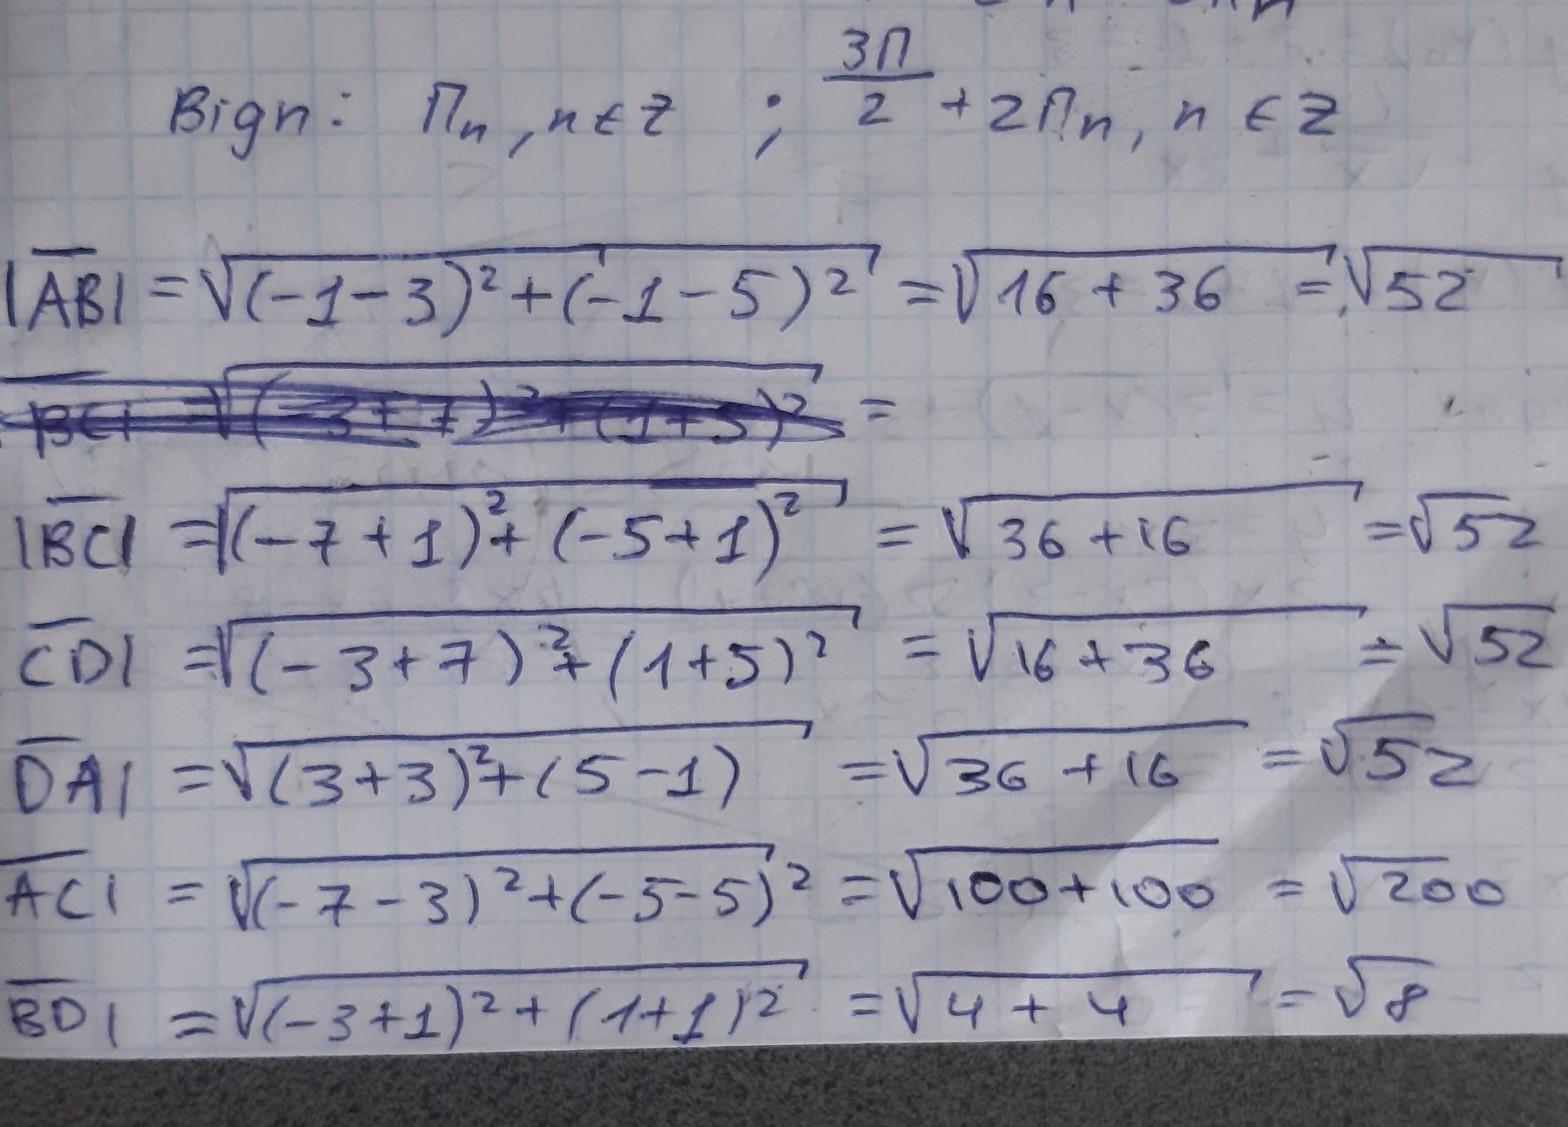 Відп: Пn, n ∈ Z ; 3П/2 + 2Пn, n ∈ Z
|AB| = √(-1-3)² + (-1-5)² = √16 + 36 = √52
BC| = √(-3+7)² + (1+5)² =
|BC| = √(-7+1)² + (-5+1)² = √36 + 16 = √52
CD| = √(-3+7)² + (1+5)² = √16 + 36 = √52
DA| = √(3+3)² + (5-1) = √36 + 16 = √52
AC| = √(-7-3)² + (-5-5)² = √100 + 100 = √200
BD| = √(-3+1)² + (1+1)² = √4 + 4 = √8